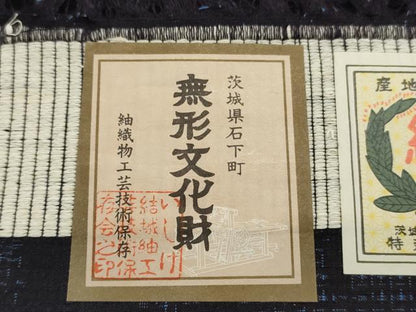 茨城県石下町
無形文化財
紬織物工芸技術保存
いしげ
結城紬工
芸技術保
存会之印
産地
茨城
特